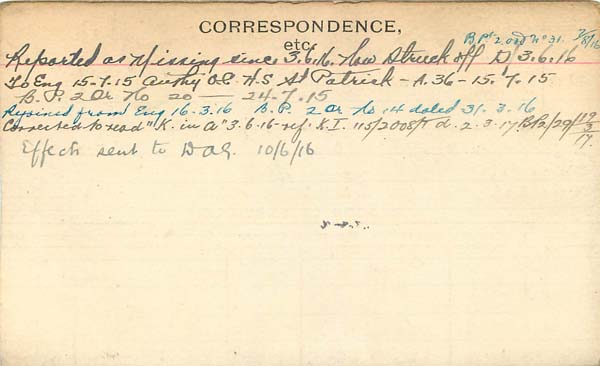 CORRESPONDENCE,
etc.
B.Pt 2 ord No 31. 7/8/16
Reported as Missing since 3.6.16. Now Struck off D 3.6.16
To Eng 15-7-15 Authy O.C. H.S. St Patrick - A.36 - 15.7.15
B.P. 2 Or No 20 — 24.7.15
Rejoined from Eng 16-3-16 B.P. 2 Or No 14 dated 31.3.16
Corrected to read "K. in A" 3.6.16 - ref. K.I. 115/2008/T d. 2.3.17 BP2/29/19/3/17.
Effects sent to DAG. 10/6/16